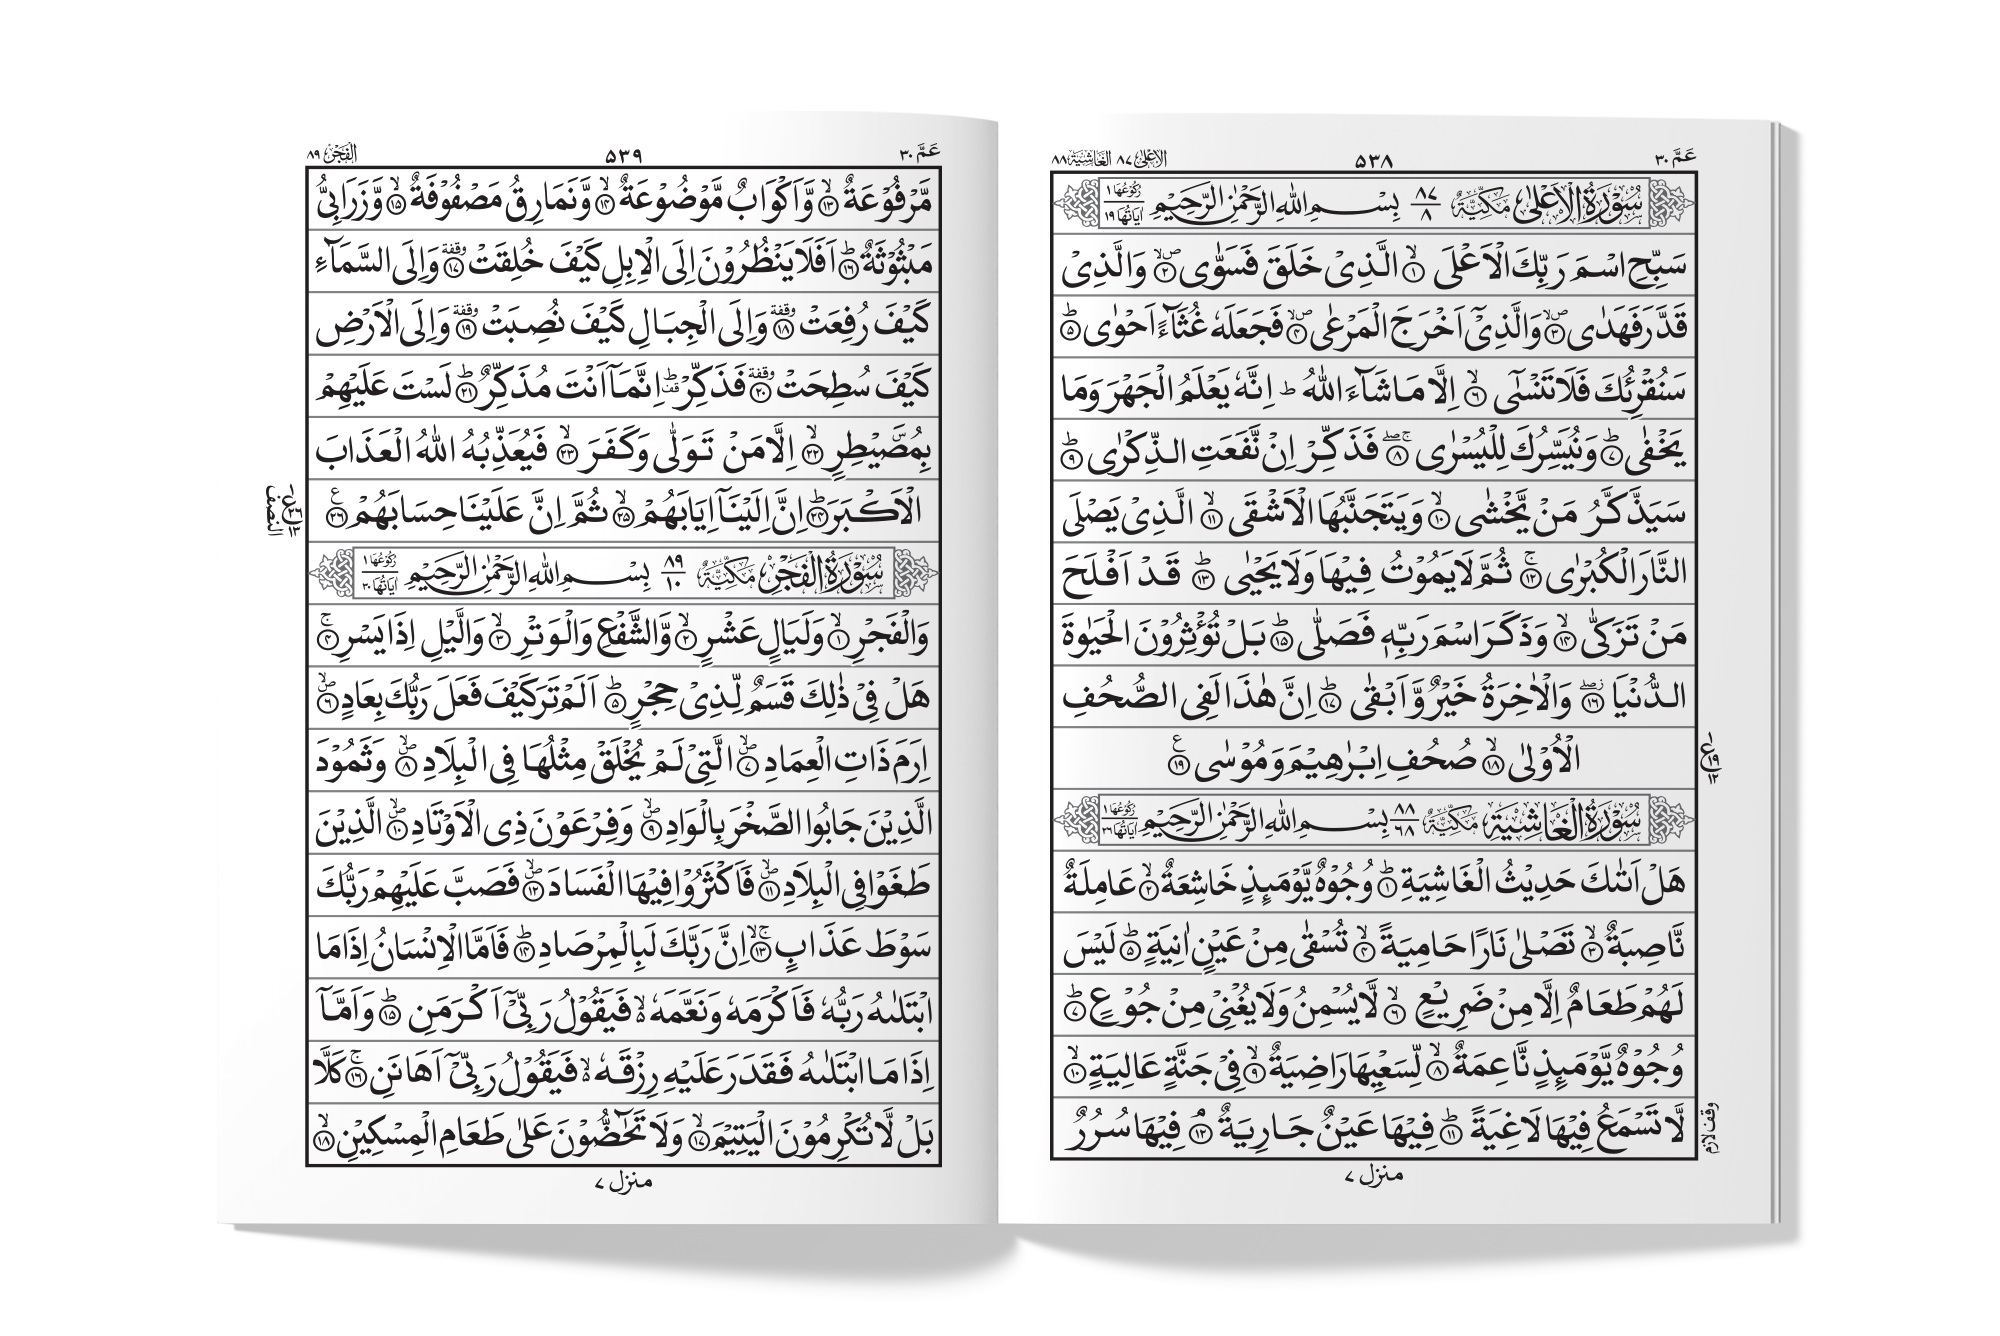 الاعلى ٨٧ الغاشية ٨٨
۵۳۸
عَمَّ ۳۰
سُوْرَةُ الْاَعْلٰى مَكِّيَّةٌ ٨٧ ٨ بِسْمِ اللهِ الرَّحْمٰنِ الرَّحِيْمِ رُكُوْعُهَا ١ اٰيَاتُهَا ١٩
سَبِّحِ اسْمَ رَبِّكَ الْاَعْلَى ۙ﴿١﴾ الَّذِىْ خَلَقَ فَسَوّٰى ۙ﴿٢﴾ وَالَّذِىْ
قَدَّرَ فَهَدٰى ۙ﴿٣﴾ وَالَّذِىْٓ اَخْرَجَ الْمَرْعٰى ۙ﴿٤﴾ فَجَعَلَهٗ غُثَآءً اَحْوٰى ؕ﴿٥﴾
سَنُقْرِئُكَ فَلَا تَنْسٰٓى ۙ﴿٦﴾ اِلَّا مَا شَآءَ اللهُ ؕ اِنَّهٗ يَعْلَمُ الْجَهْرَ وَمَا
يَخْفٰى ؕ﴿٧﴾ وَنُيَسِّرُكَ لِلْيُسْرٰى ۚۖ﴿٨﴾ فَذَكِّرْ اِنْ نَّفَعَتِ الذِّكْرٰى ؕ﴿٩﴾
سَيَذَّكَّرُ مَنْ يَّخْشٰى ۙ﴿١٠﴾ وَيَتَجَنَّبُهَا الْاَشْقَى ۙ﴿١١﴾ الَّذِىْ يَصْلَى
النَّارَ الْكُبْرٰى ۚ﴿١٢﴾ ثُمَّ لَا يَمُوْتُ فِيْهَا وَلَا يَحْيٰى ؕ﴿١٣﴾ قَدْ اَفْلَحَ
مَنْ تَزَكّٰى ۙ﴿١٤﴾ وَذَكَرَ اسْمَ رَبِّهٖ فَصَلّٰى ؕ﴿١٥﴾ بَلْ تُؤْثِرُوْنَ الْحَيٰوةَ
الدُّنْيَا ۖ﴿١٦﴾ وَالْاٰخِرَةُ خَيْرٌ وَّاَبْقٰى ؕ﴿١٧﴾ اِنَّ هٰذَا لَفِى الصُّحُفِ
الْاُوْلٰى ۙ﴿١٨﴾ صُحُفِ اِبْرٰهِيْمَ وَمُوْسٰى ﴿١٩﴾
سُوْرَةُ الْغَاشِيَةِ مَكِّيَّةٌ ٨٨ ٦٨ بِسْمِ اللهِ الرَّحْمٰنِ الرَّحِيْمِ رُكُوْعُهَا ١ اٰيَاتُهَا ٢٦
هَلْ اَتٰىكَ حَدِيْثُ الْغَاشِيَةِ ؕ﴿١﴾ وُجُوْهٌ يَّوْمَئِذٍ خَاشِعَةٌ ۙ﴿٢﴾ عَامِلَةٌ
نَّاصِبَةٌ ۙ﴿٣﴾ تَصْلٰى نَارًا حَامِيَةً ۙ﴿٤﴾ تُسْقٰى مِنْ عَيْنٍ اٰنِيَةٍ ؕ﴿٥﴾ لَيْسَ
لَهُمْ طَعَامٌ اِلَّا مِنْ ضَرِيْعٍ ۙ﴿٦﴾ لَّا يُسْمِنُ وَلَا يُغْنِىْ مِنْ جُوْعٍ ؕ﴿٧﴾
وُجُوْهٌ يَّوْمَئِذٍ نَّاعِمَةٌ ۙ﴿٨﴾ لِّسَعْيِهَا رَاضِيَةٌ ۙ﴿٩﴾ فِىْ جَنَّةٍ عَالِيَةٍ ۙ﴿١٠﴾
لَّا تَسْمَعُ فِيْهَا لَاغِيَةً ؕ﴿١١﴾ فِيْهَا عَيْنٌ جَارِيَةٌ ۘ﴿١٢﴾ فِيْهَا سُرُرٌ
وقف لازم
منزل ۷
الفجر ٨٩
۵۳۹
عَمَّ ۳۰
مَّرْفُوْعَةٌ ۙ﴿١٣﴾ وَّاَكْوَابٌ مَّوْضُوْعَةٌ ۙ﴿١٤﴾ وَّنَمَارِقُ مَصْفُوْفَةٌ ۙ﴿١٥﴾ وَّزَرَابِىُّ
مَبْثُوْثَةٌ ؕ﴿١٦﴾ اَفَلَا يَنْظُرُوْنَ اِلَى الْاِبِلِ كَيْفَ خُلِقَتْ وقفة ﴿١٧﴾ وَاِلَى السَّمَآءِ
كَيْفَ رُفِعَتْ وقفة ﴿١٨﴾ وَاِلَى الْجِبَالِ كَيْفَ نُصِبَتْ وقفة ﴿١٩﴾ وَاِلَى الْاَرْضِ
كَيْفَ سُطِحَتْ وقفة ﴿٢٠﴾ فَذَكِّرْ ؕ قف اِنَّمَآ اَنْتَ مُذَكِّرٌ ؕ﴿٢١﴾ لَسْتَ عَلَيْهِمْ
بِمُصَۜيْطِرٍ ۙ﴿٢٢﴾ اِلَّا مَنْ تَوَلّٰى وَكَفَرَ ۙ﴿٢٣﴾ فَيُعَذِّبُهُ اللهُ الْعَذَابَ
الْاَكْبَرَ ؕ﴿٢٤﴾ اِنَّ اِلَيْنَآ اِيَابَهُمْ ۙ﴿٢٥﴾ ثُمَّ اِنَّ عَلَيْنَا حِسَابَهُمْ ﴿٢٦﴾
النصف
سُوْرَةُ الْفَجْرِ مَكِّيَّةٌ ٨٩ ١٠ بِسْمِ اللهِ الرَّحْمٰنِ الرَّحِيْمِ رُكُوْعُهَا ١ اٰيَاتُهَا ٣٠
وَالْفَجْرِ ۙ﴿١﴾ وَلَيَالٍ عَشْرٍ ۙ﴿٢﴾ وَّالشَّفْعِ وَالْوَتْرِ ۙ﴿٣﴾ وَالَّيْلِ اِذَا يَسْرِ ۚ﴿٤﴾
هَلْ فِىْ ذٰلِكَ قَسَمٌ لِّذِىْ حِجْرٍ ؕ﴿٥﴾ اَلَمْ تَرَ كَيْفَ فَعَلَ رَبُّكَ بِعَادٍ ۙ﴿٦﴾
اِرَمَ ذَاتِ الْعِمَادِ ۙ﴿٧﴾ الَّتِىْ لَمْ يُخْلَقْ مِثْلُهَا فِى الْبِلَادِ ۙ﴿٨﴾ وَثَمُوْدَ
الَّذِيْنَ جَابُوا الصَّخْرَ بِالْوَادِ ۙ﴿٩﴾ وَفِرْعَوْنَ ذِى الْاَوْتَادِ ۙ﴿١٠﴾ الَّذِيْنَ
طَغَوْا فِى الْبِلَادِ ۙ﴿١١﴾ فَاَكْثَرُوْا فِيْهَا الْفَسَادَ ۙ﴿١٢﴾ فَصَبَّ عَلَيْهِمْ رَبُّكَ
سَوْطَ عَذَابٍ ۚۙ﴿١٣﴾ اِنَّ رَبَّكَ لَبِالْمِرْصَادِ ؕ﴿١٤﴾ فَاَمَّا الْاِنْسَانُ اِذَا مَا
ابْتَلٰىهُ رَبُّهٗ فَاَكْرَمَهٗ وَنَعَّمَهٗ ۙ فَيَقُوْلُ رَبِّىْٓ اَكْرَمَنِ ؕ﴿١٥﴾ وَاَمَّآ
اِذَا مَا ابْتَلٰىهُ فَقَدَرَ عَلَيْهِ رِزْقَهٗ ۙ فَيَقُوْلُ رَبِّىْٓ اَهَانَنِ ۚ﴿١٦﴾ كَلَّا
بَلْ لَّا تُكْرِمُوْنَ الْيَتِيْمَ ۙ﴿١٧﴾ وَلَا تَحٰٓضُّوْنَ عَلٰى طَعَامِ الْمِسْكِيْنِ ۙ﴿١٨﴾
منزل ۷